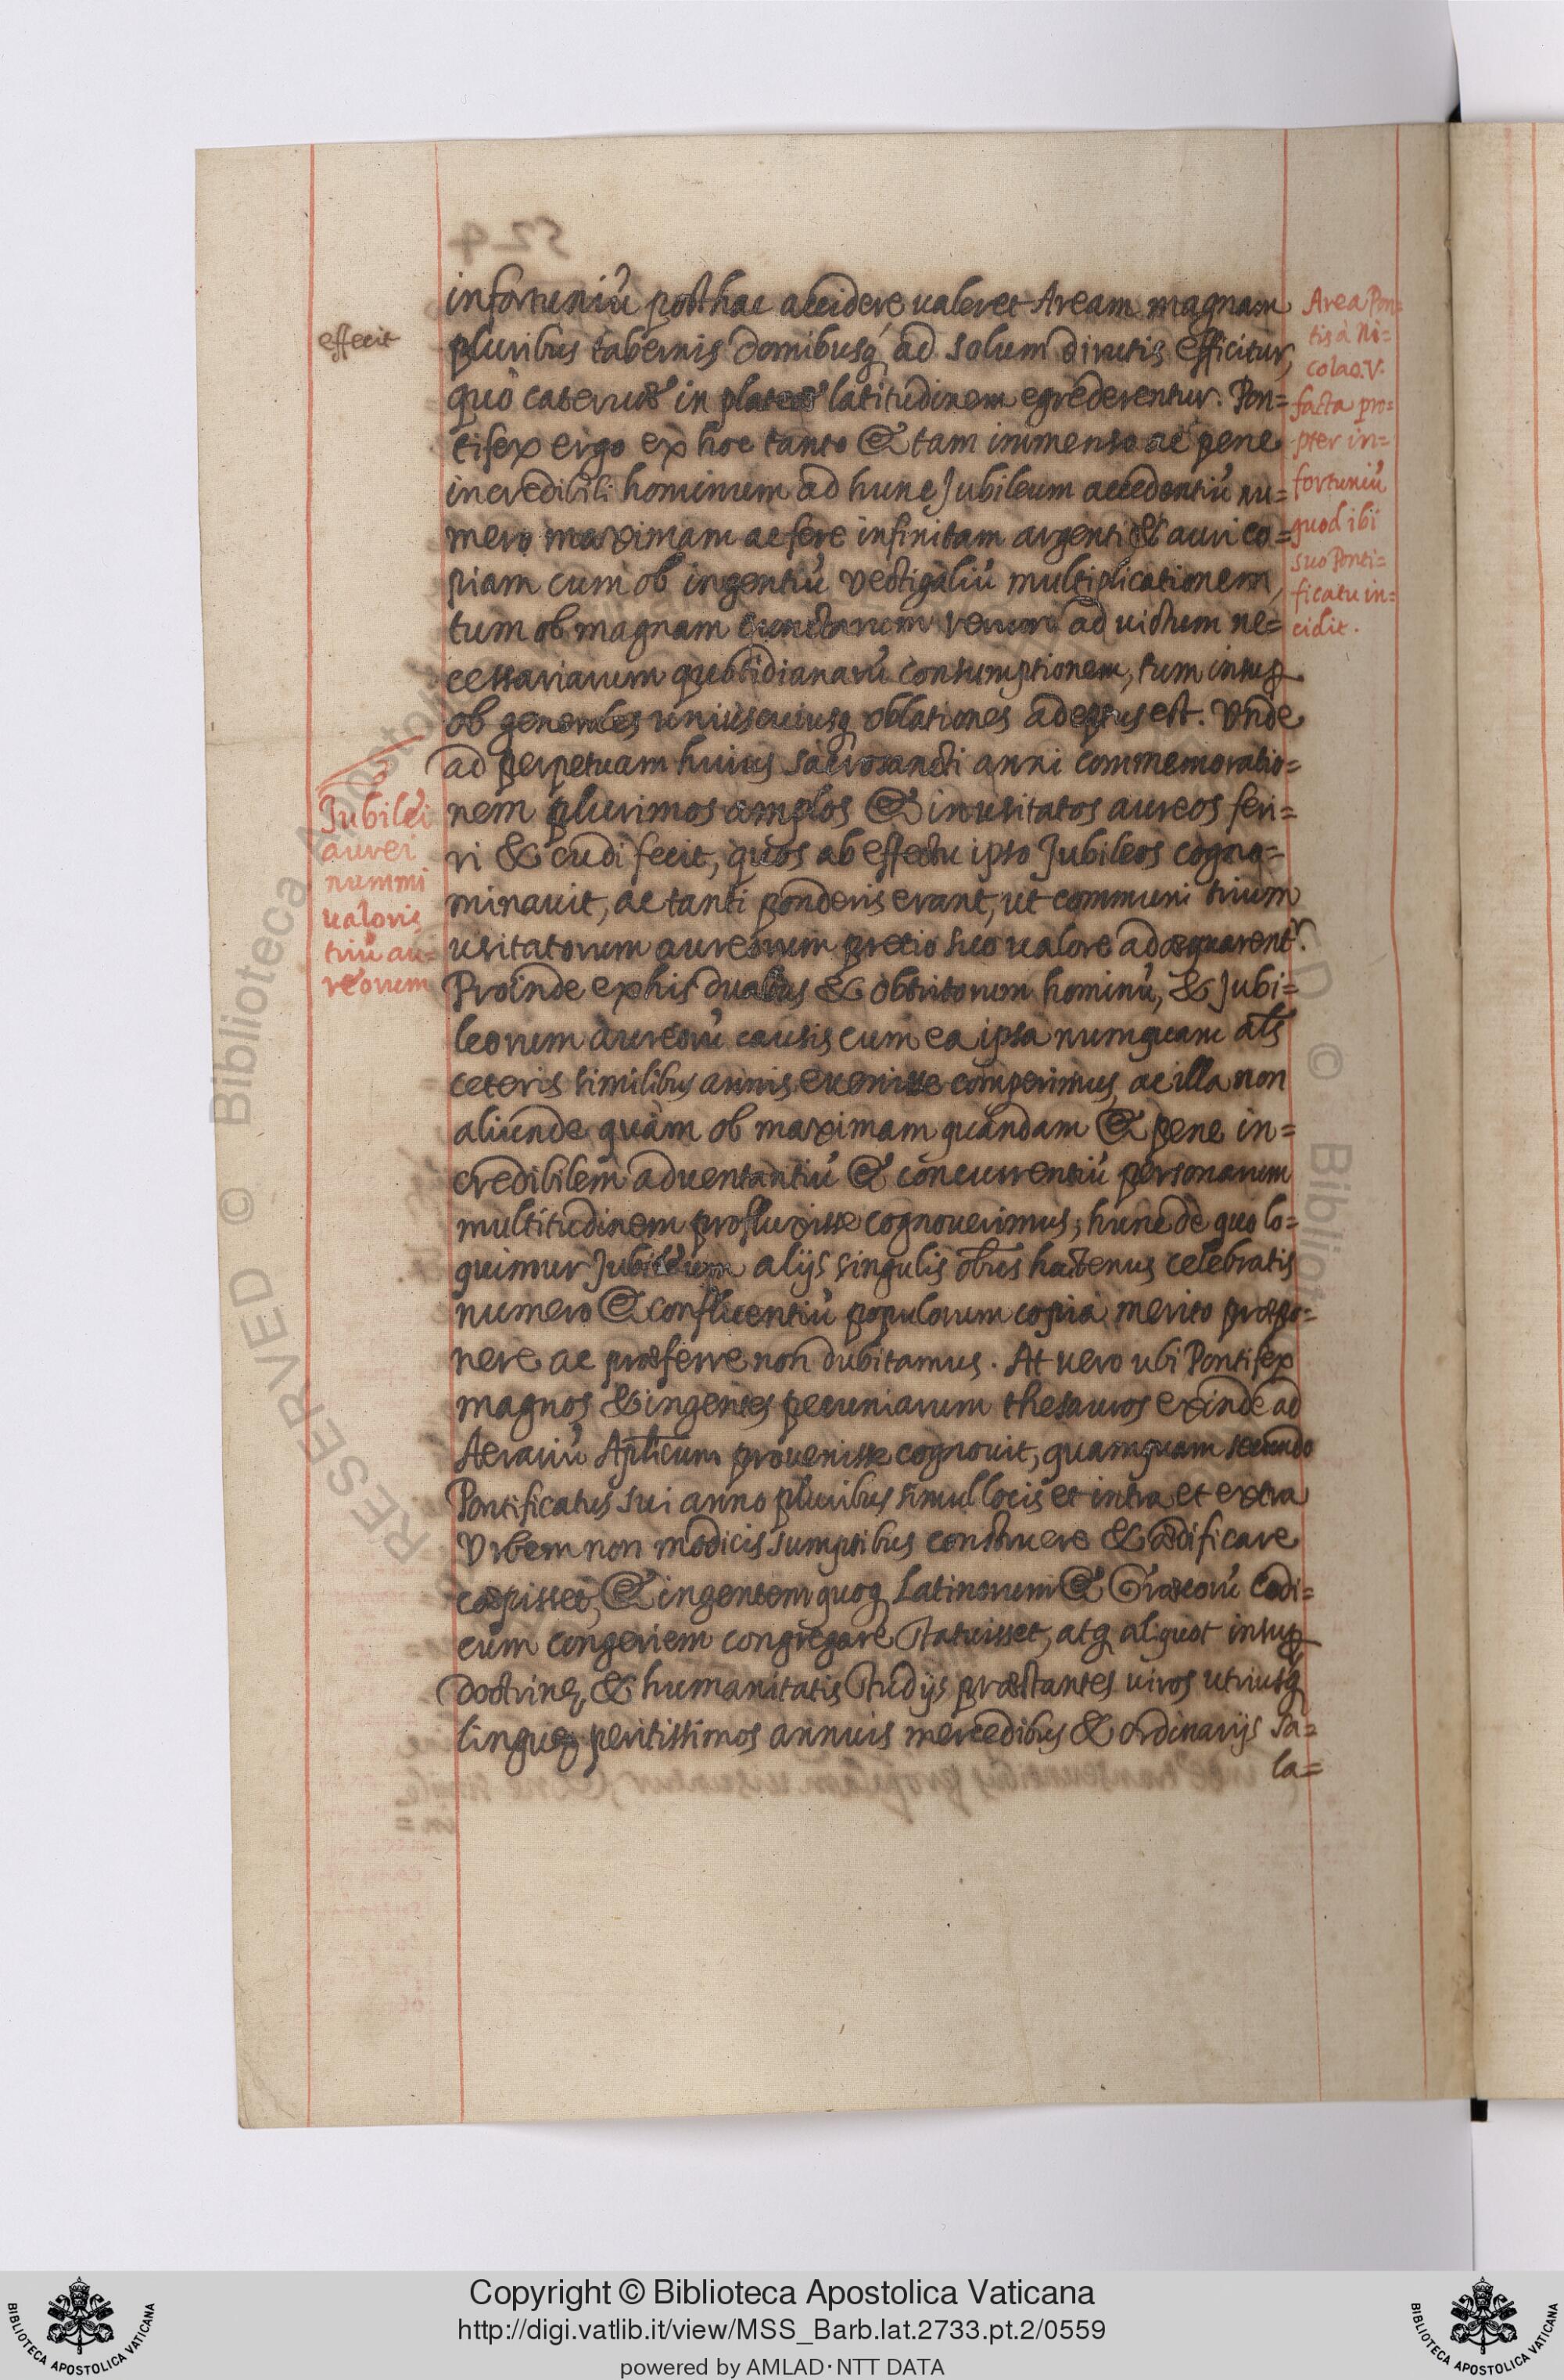 infortuniũ posthac accidere ualeret Aream magnam
pluribus tabernis domibusq́ ad solum dirutis efficitur,
quò cateruæ in plateæ latitudinem egrederentur. Pon=
tifex ergo ex hoc tanto & tam immenso ac pene
incredibili hominum ad hunc Jubileum accedentiũ nu=
mero maximam ac fere infinitam argenti & auri co=
piam cum ob ingentiũ vectigaliũ multiplicationem,
tum ob magnam cunctarum rerum ad uictum ne=
cessariarum quotidianarũ consumptionem, tum insup
ob generales uniuscuiusq́ oblationes adeptus est. Vnde
ad perpetuam huius sacrosancti anni commemoratio=
nem plurimos amplos & inusitatos aureos feri=
ri & cudi fecit, quos ab effectu ipso Jubileos cogno=
minauit, ac tanti ponderis erant, ut communi trium
usitatorum aureorum pretio suo ualore adæquarent.
Proinde ex his duabus & obtritorum hominũ, & Jubi=
leorum aureorũ causis cum ea ipsa numquam als
ceteris similibus annis euenisse comperimus, ac illa non
aliunde quàm ob maximam quandam & pene in=
credibilem aduentantiũ & concurrentiũ personarum
multitudinem profluxisse cognouerimus, hunc de quo lo=
quimur Jubileum alijs singulis obus hactenus celebratis
numero & confluentiũ populorum copia merito præpo=
nere ac præferre non dubitamus. At uero ubi Pontifex
magnos & ingentes pecuniarum thesauros exinde ad
Aerariũ Aplicum prouenisse cognouit, quamquam secundo
Pontificatus sui anno pluribus simul locis et intra et extra
Vrbem non modicis sumptibus construere & ædificare
cæpisset, & ingentem quoq́ Latinorum & Græcorũ Codi=
cum congeriem congregare statuisset, atq́ aliquot insup
doctrinę, & humanitatis studijs præstantes uiros utriusq́
linguę peritissimos annuis mercedibus & ordinarijs sa=
la=
effecit
Jubilei
aurei
nummi
ualoris
triũ au=
reorum
Area Pon=
tis à Ni=
colao. V.
facta pro=
pter in=
fortuniũ
quod ibi
suo Ponti=
ficatu in=
cidit.
Copyright © Biblioteca Apostolica Vaticana
http://digi.vatlib.it/view/MSS_Barb.lat.2733.pt.2/0559
powered by AMLAD·NTT DATA
BIBLIOTECA APOSTOLICA VATICANA
BIBLIOTECA APOSTOLICA VATICANA